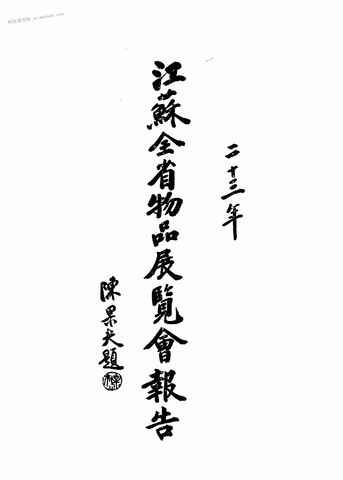 二十三年
江蘇全省物品展覽會報告
陳果夫題